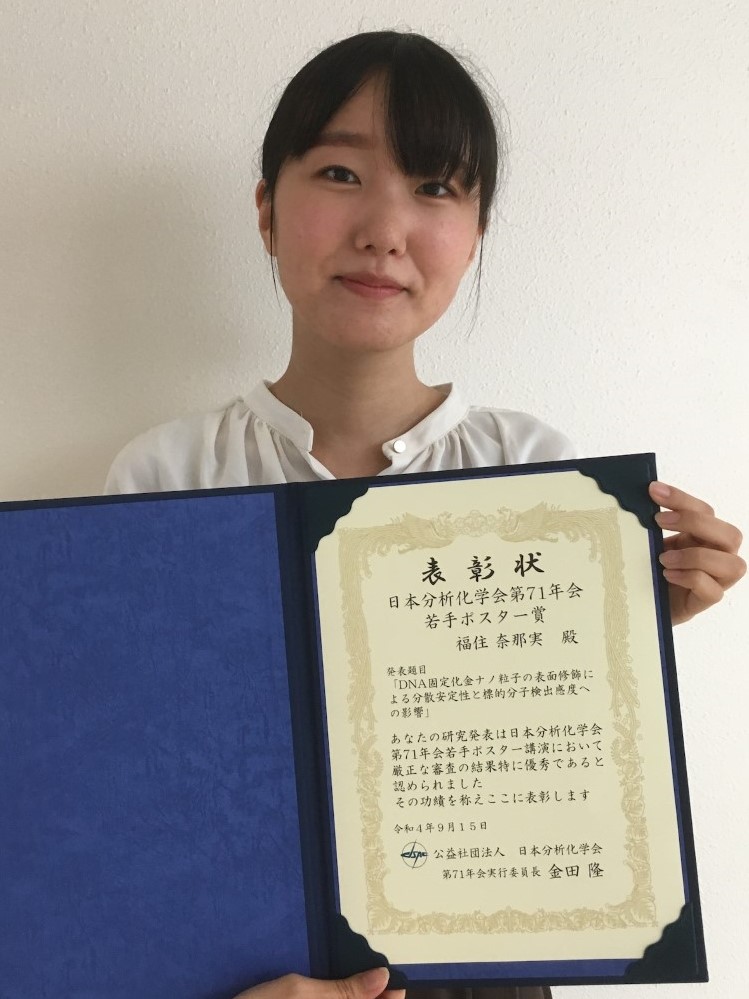 表彰状
日本分析化学会第71年会
若手ポスター賞
福住 奈那実 殿
発表題目
「DNA固定化金ナノ粒子の表面修飾に
よる分散安定性と標的分子検出感度へ
の影響」
あなたの研究発表は日本分析化学会
第71年会若手ポスター講演において
厳正な審査の結果特に優秀であると
認められました
その功績を称えここに表彰します
令和4年9月15日
公益社団法人 日本分析化学会
第71年会実行委員長 金田 隆